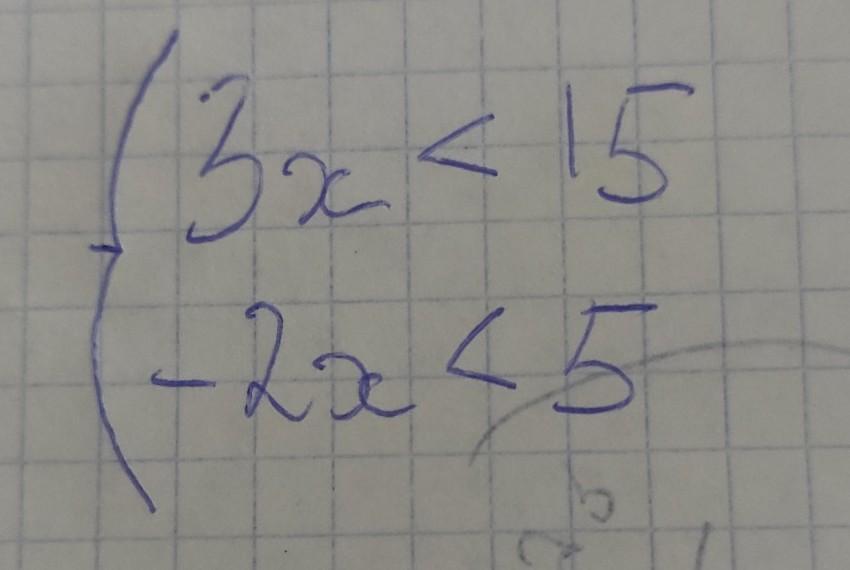 3x < 15
-2x < 5